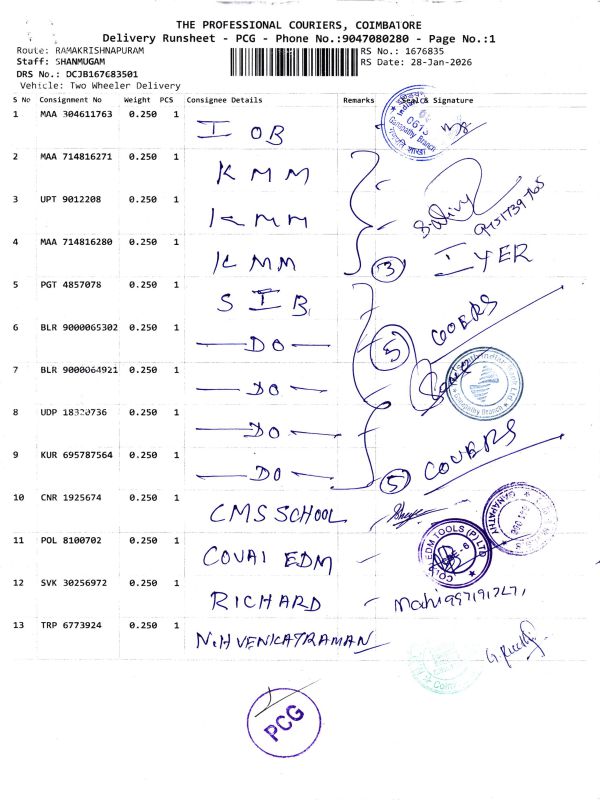 THE PROFESSIONAL COURIERS, COIMBATORE
Delivery Runsheet - PCG - Phone No.:9047080280 - Page No.:1
Route: RAMAKRISHNAPURAM
RS No.: 1676835
Staff: SHANMUGAM
RS Date: 28-Jan-2026
DRS No.: DCJB167683501
Vehicle: Two Wheeler Delivery
S No Consignment No Weight PCS Consignee Details Remarks Seal & Signature
1 MAA 304611763 0.250 1 I OB
0613
Ganapathy Branch
2 MAA 714816271 0.250 1 KMM
3 UPT 9012208 0.250 1 KMM
4 MAA 714816280 0.250 1 KMM 3 IYER
5 PGT 4857078 0.250 1 SIB
6 BLR 9000065302 0.250 1 —DO— 5 COVERS
7 BLR 9000064921 0.250 1 —DO—
South Indian Bank Ltd
Ganapathy Branch
8 UDP 18320736 0.250 1 —DO—
9 KUR 695787564 0.250 1 —DO— 5 COVERS
10 CNR 1925674 0.250 1 CMS SCHOOL
GANAPATHY
11 POL 8100702 0.250 1 COVAI EDM
EDM TOOLS (P) LTD
12 SVK 30256972 0.250 1 RICHARD Mahi
13 TRP 6773924 0.250 1 N.H VENKATRAMAN
PCG